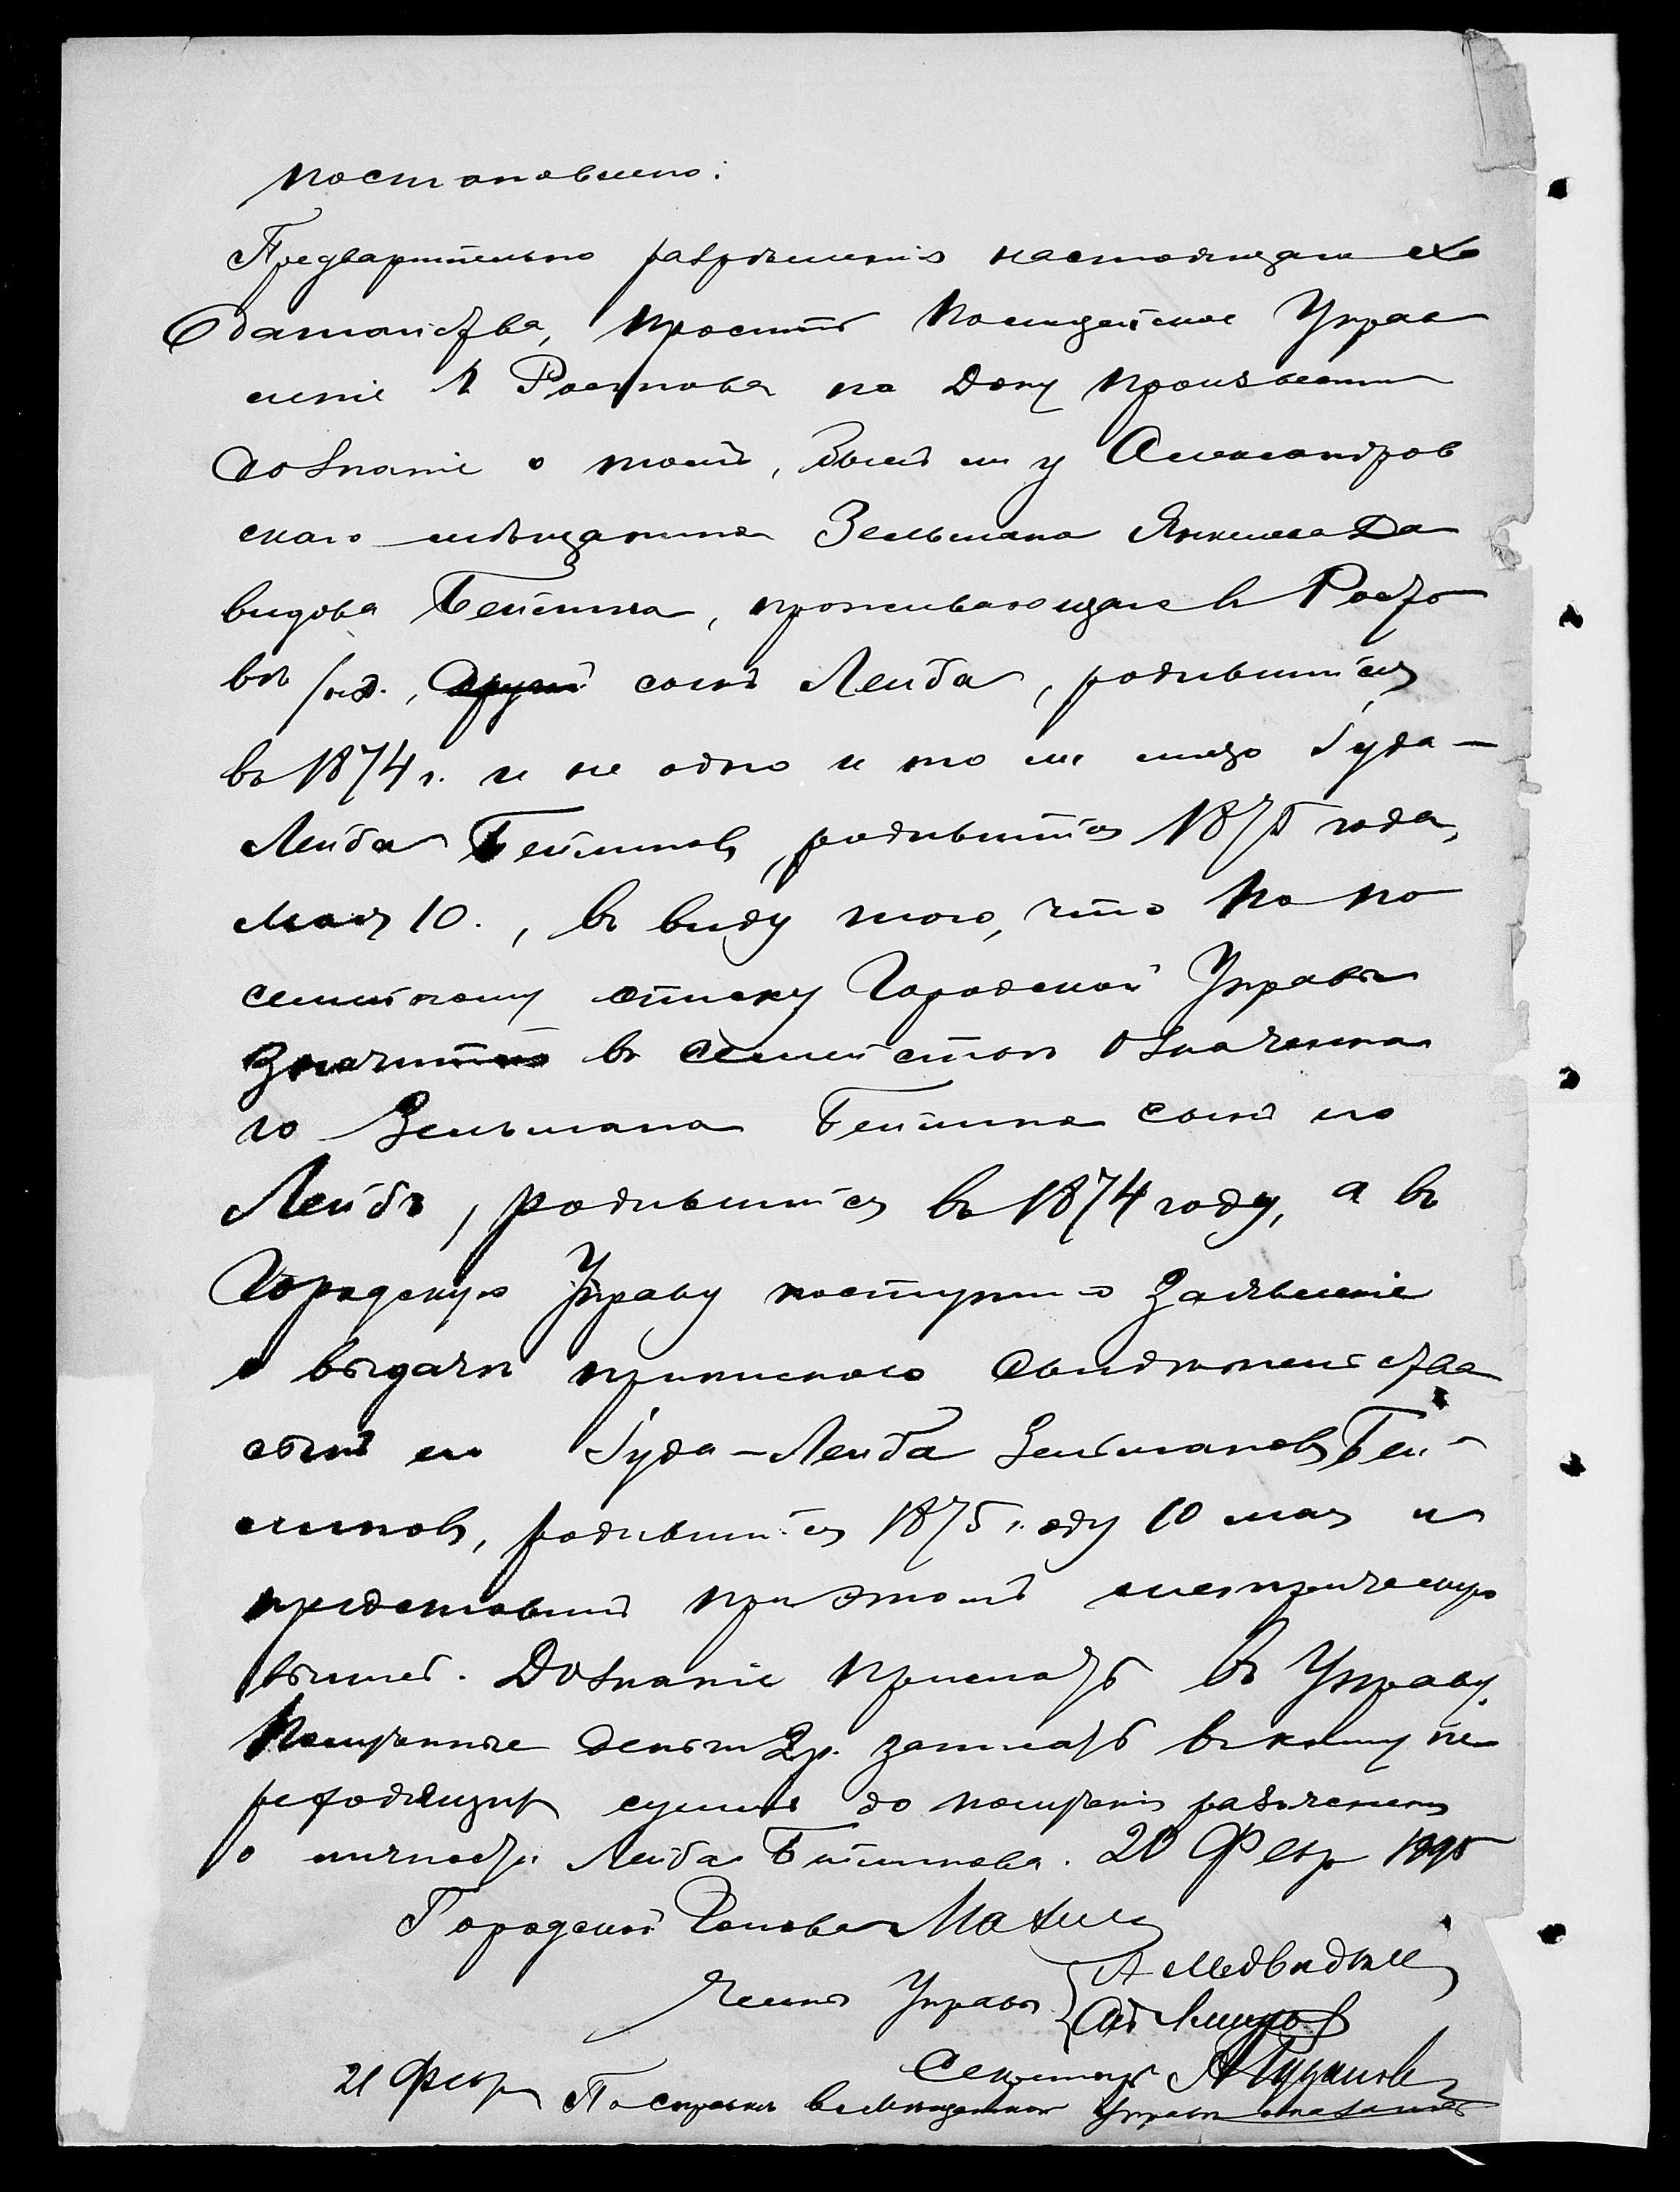 постановлено:
Предварительно разрѣшенія настоящаго хо
датайства, просить Полицейское Управ
леніе г. Ростова на Дону произвести
дознаніе о томъ, былъ ли у Александров
скаго мѣщанина Зельмана Янкелева Да
видова Бейлина, проживающаго въ Росто
вѣ н/Д., сынъ Лейба, родившійся
въ 1874 г. и не одно и то же лицо Іуда-
Лейба Бейлиновъ, родившійся 1875 года,
мая 10., въ виду того, что по по
семейному списку Городской Управы
значится въ семействѣ означенна
го Зельмана Бейлина сынъ его
Лейбъ, родившійся въ 1874 году, а въ
Городскую Управу поступило заявленіе
о выдачѣ приписнаго свидѣтельства
сынъ его Іуда-Лейба Зельмановъ Бей-
линовъ, родившійся 1875 году 10 мая и
представилъ при этомъ метрическую
выпись. Дознаніе прислать въ Управу.
Полученные деньги 2 р. записать въ книгу пе
реходящихъ суммъ до полученія разъясненія
о личности Лейба Бейлинова. 20 Февр 1895
Городской Голова
Члены Управы
Секретарь
21 Февр По справкѣ въ Мѣщанской Управѣ оказалось